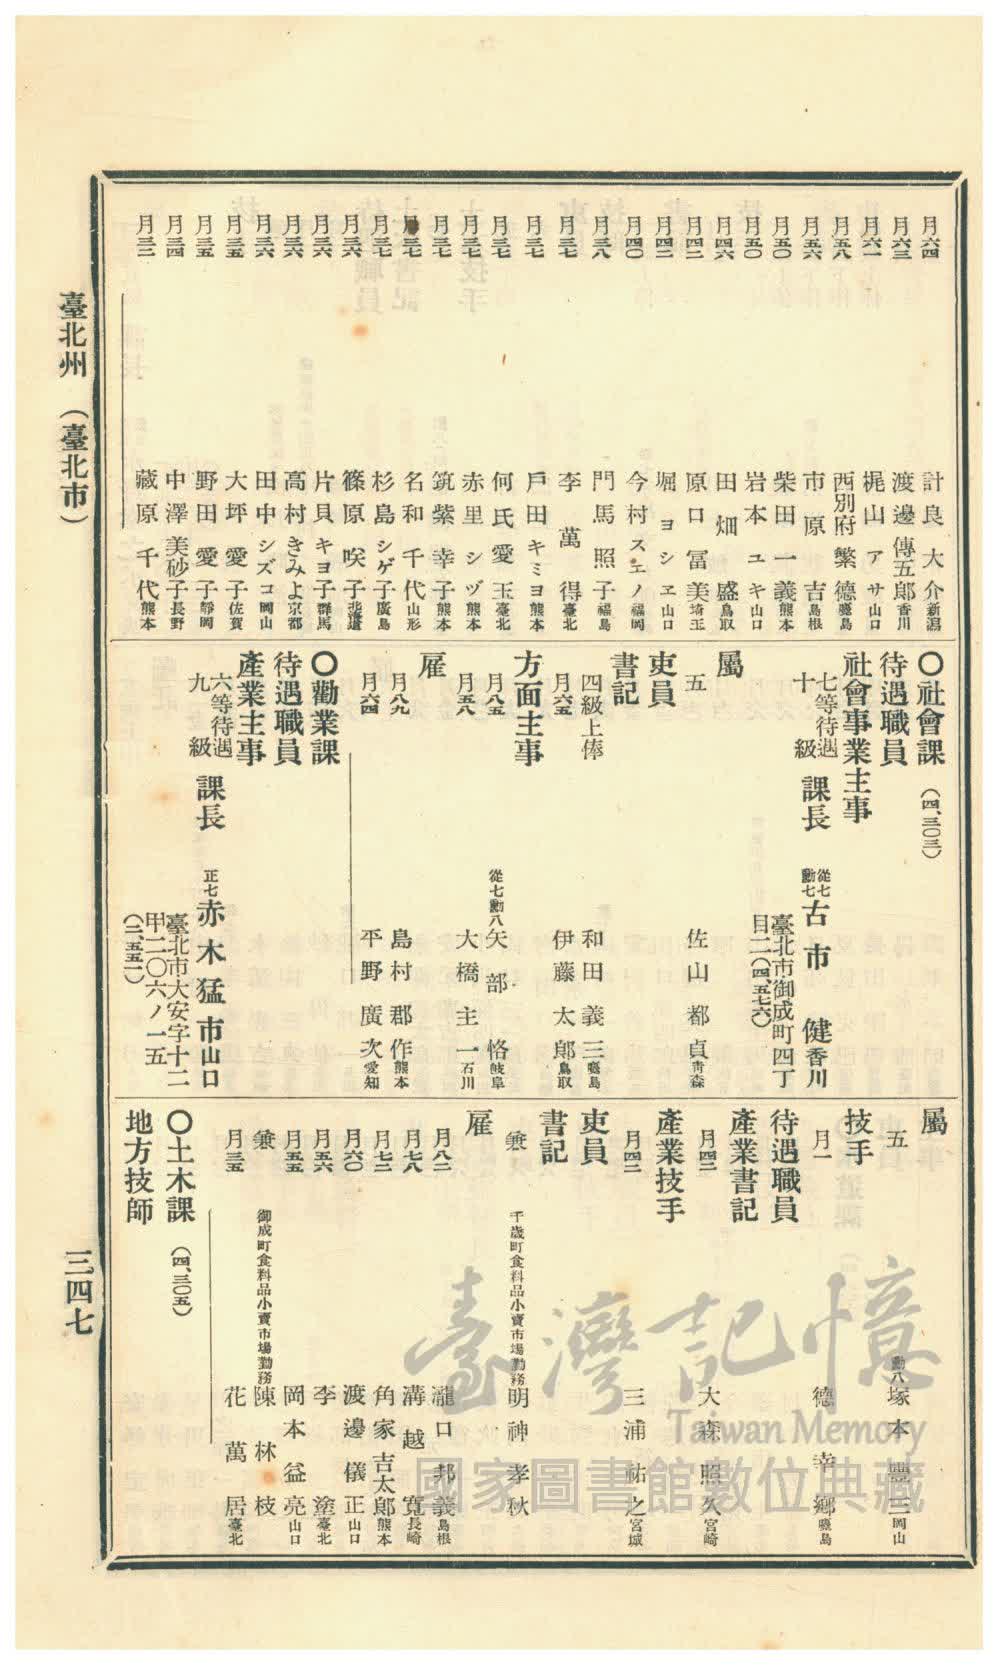 月六四 計良大介 新潟
月六三 渡邊傳五郎 香川
月六一 梶山アサ 山口
月五八 西別府繁德 鹿島
月五六 市原吉 島根
月五〇 柴田一義 熊本
月五〇 岩本ユキ 山口
月四六 田畑盛 鳥取
月四二 原口冨美 埼玉
月四二 堀ヨシヱ 山口
月四〇 今村スエノ 福岡
月三八 門馬照子 福島
月三七 李萬得 臺北
月三七 戶田キミヨ 熊本
月三七 何氏愛玉 臺北
月三七 赤里シヅ 熊本
月三七 筑紫幸子 熊本
月三七 名和千代 山形
月三七 杉島シゲ子 廣島
月三六 篠原咲子 北海道
月三六 片貝キヨ子 群馬
月三六 高村きみよ 京都
月三六 田中シズコ 岡山
月三五 大坪愛子 佐賀
月三五 野田愛子 靜岡
月三四 中澤美砂子 長野
月三二 藏原千代 熊本
〇社會課 (四、三〇三)
待遇職員
社會事業主事
七等待遇 十級 課長 從七勳七 古市健 香川
臺北市御成町四丁
目二(四、五七六)
屬
五 佐山都貞 靑森
吏員
書記
四級上俸 和田義三 鹿島
月六五 伊藤太郞 鳥取
方面主事
月八五 從七勳八 矢部恪 岐阜
月五八 大橋主一 石川
雇
月八九 島村郡作 熊本
月六四 平野廣次 愛知
〇勸業課
待遇職員
產業主事
六等待遇 九級 課長 正七 赤木猛市 山口
臺北市大安字十二
甲二〇六ノ一五
(二、五五一)
屬
五 勳八 塚本豐三 岡山
技手
月一 德幸鄉 鹿島
待遇職員
產業書記
月四二 大森照久 宮崎
產業技手
月四二 三浦祐之 宮城
吏員
書記
兼 千歲町食料品小賣市場勤務 明神孝秋
雇
月八二 瀧口邦義 島根
月七八 溝越寬 長崎
月七二 角家吉太郞 熊本
月六〇 渡邊儀正 山口
月五六 李塗 臺北
月五五 岡本益亮 山口
兼 御成町食料品小賣市場勤務 陳林枝
月三五 花萬居 臺北
〇土木課 (四、三〇五)
地方技師
臺北州 (臺北市)
三四七
臺灣記憶
Taiwan Memory
國家圖書館數位典藏